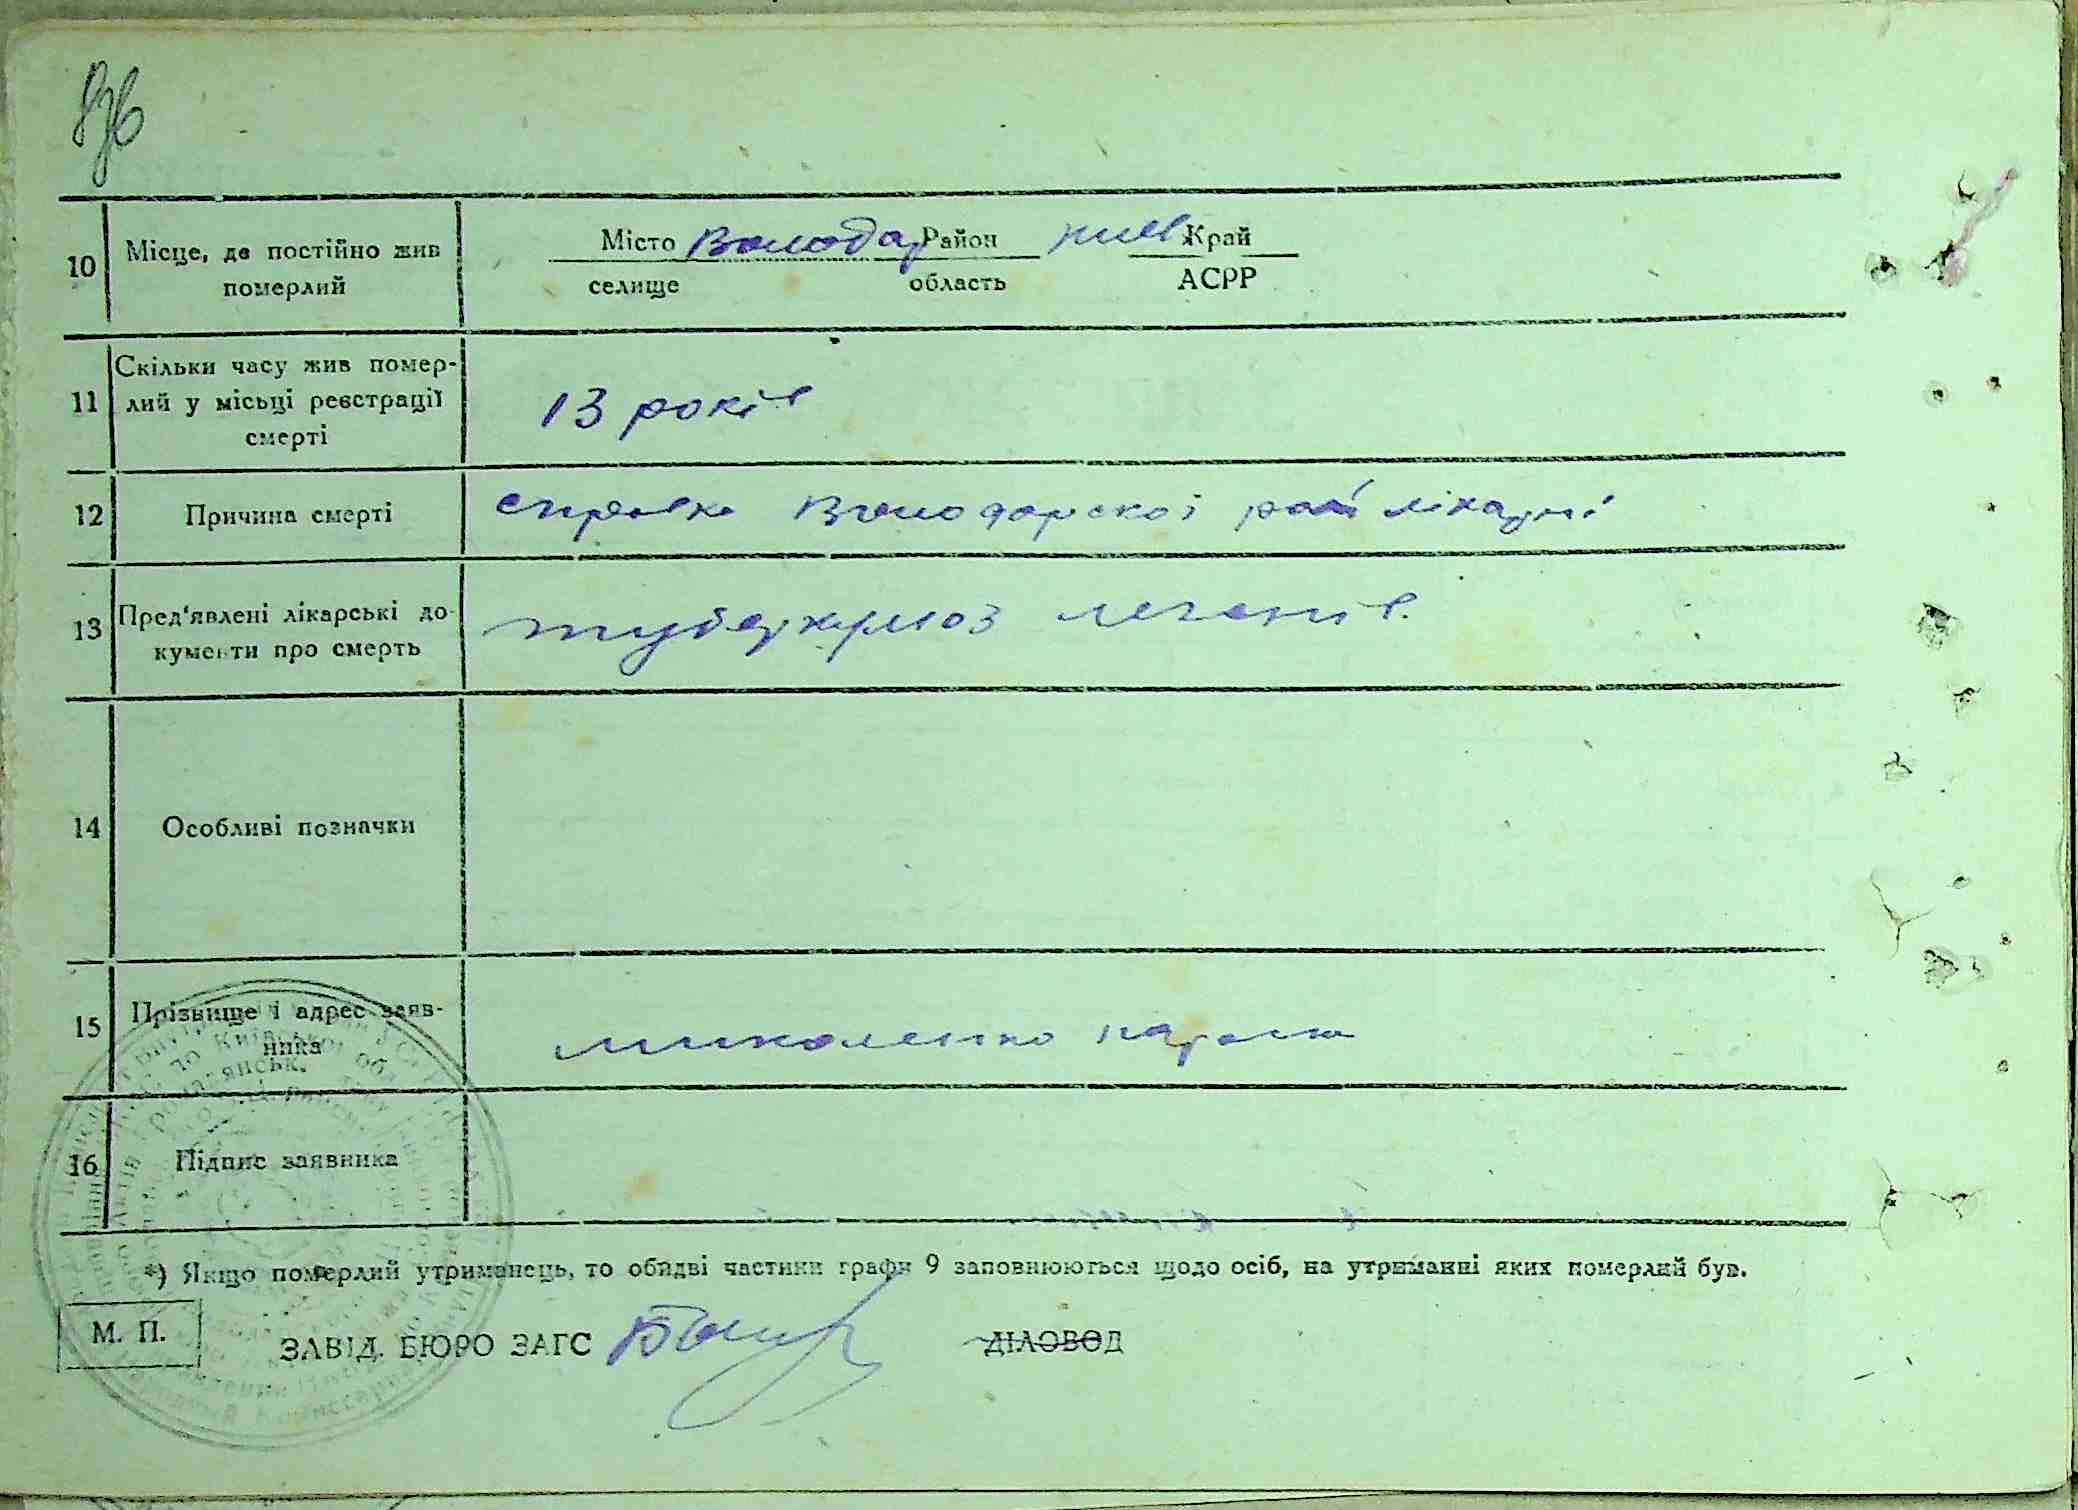 10 Місце, де постійно жив Місто Володар Район київ Край
померлий селище область АСРР
Скільки часу жив помер-
11 лий у місьці реєстрації 13 років
смерті
12 Причина смерті справка Володарскої рай лікарні
13 Пред'явлені лікарські до- туберкульоз легенів.
кументи про смерть
14 Особливі позначки
15 Прізвище і адрес заяв-
ника Миколенко Параска
16 Підпис заявника
*) Якщо померлий утриманець, то обидві частини графи 9 заповнюються щодо осіб, на утриманні яких померлий був.
М. П.
ЗАВІД. БЮРО ЗАГС ДІЛОВОД